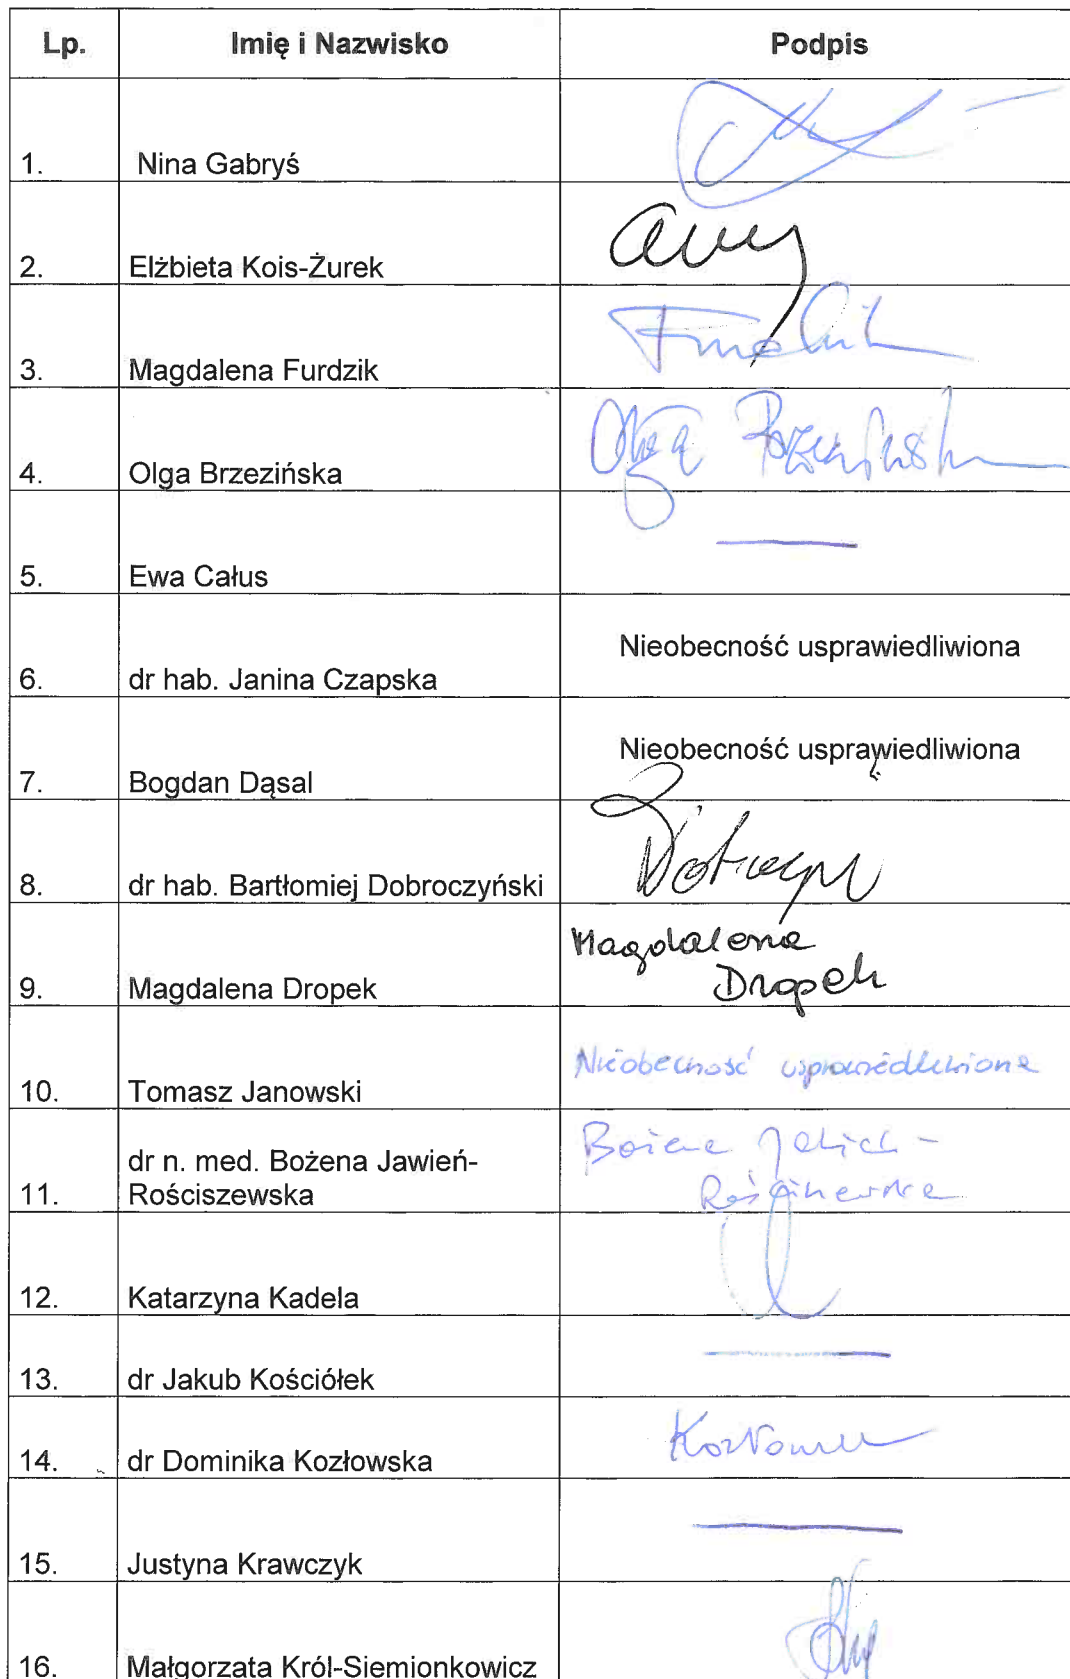 Lp. Imię i Nazwisko Podpis
1. Nina Gabryś
2. Elżbieta Kois-Żurek
3. Magdalena Furdzik
4. Olga Brzezińska Olga Brzezińska
5. Ewa Całus
6. dr hab. Janina Czapska Nieobecność usprawiedliwiona
7. Bogdan Dąsal Nieobecność usprawiedliwiona
8. dr hab. Bartłomiej Dobroczyński
9. Magdalena Dropek Magdalena
Dropek
10. Tomasz Janowski Nieobecność usprawiedliwiona
dr n. med. Bożena Jawień- Bożena
11. Rościszewska
12. Katarzyna Kadela
13. dr Jakub Kościółek
14. dr Dominika Kozłowska
15. Justyna Krawczyk
16. Małgorzata Król-Siemionkowicz